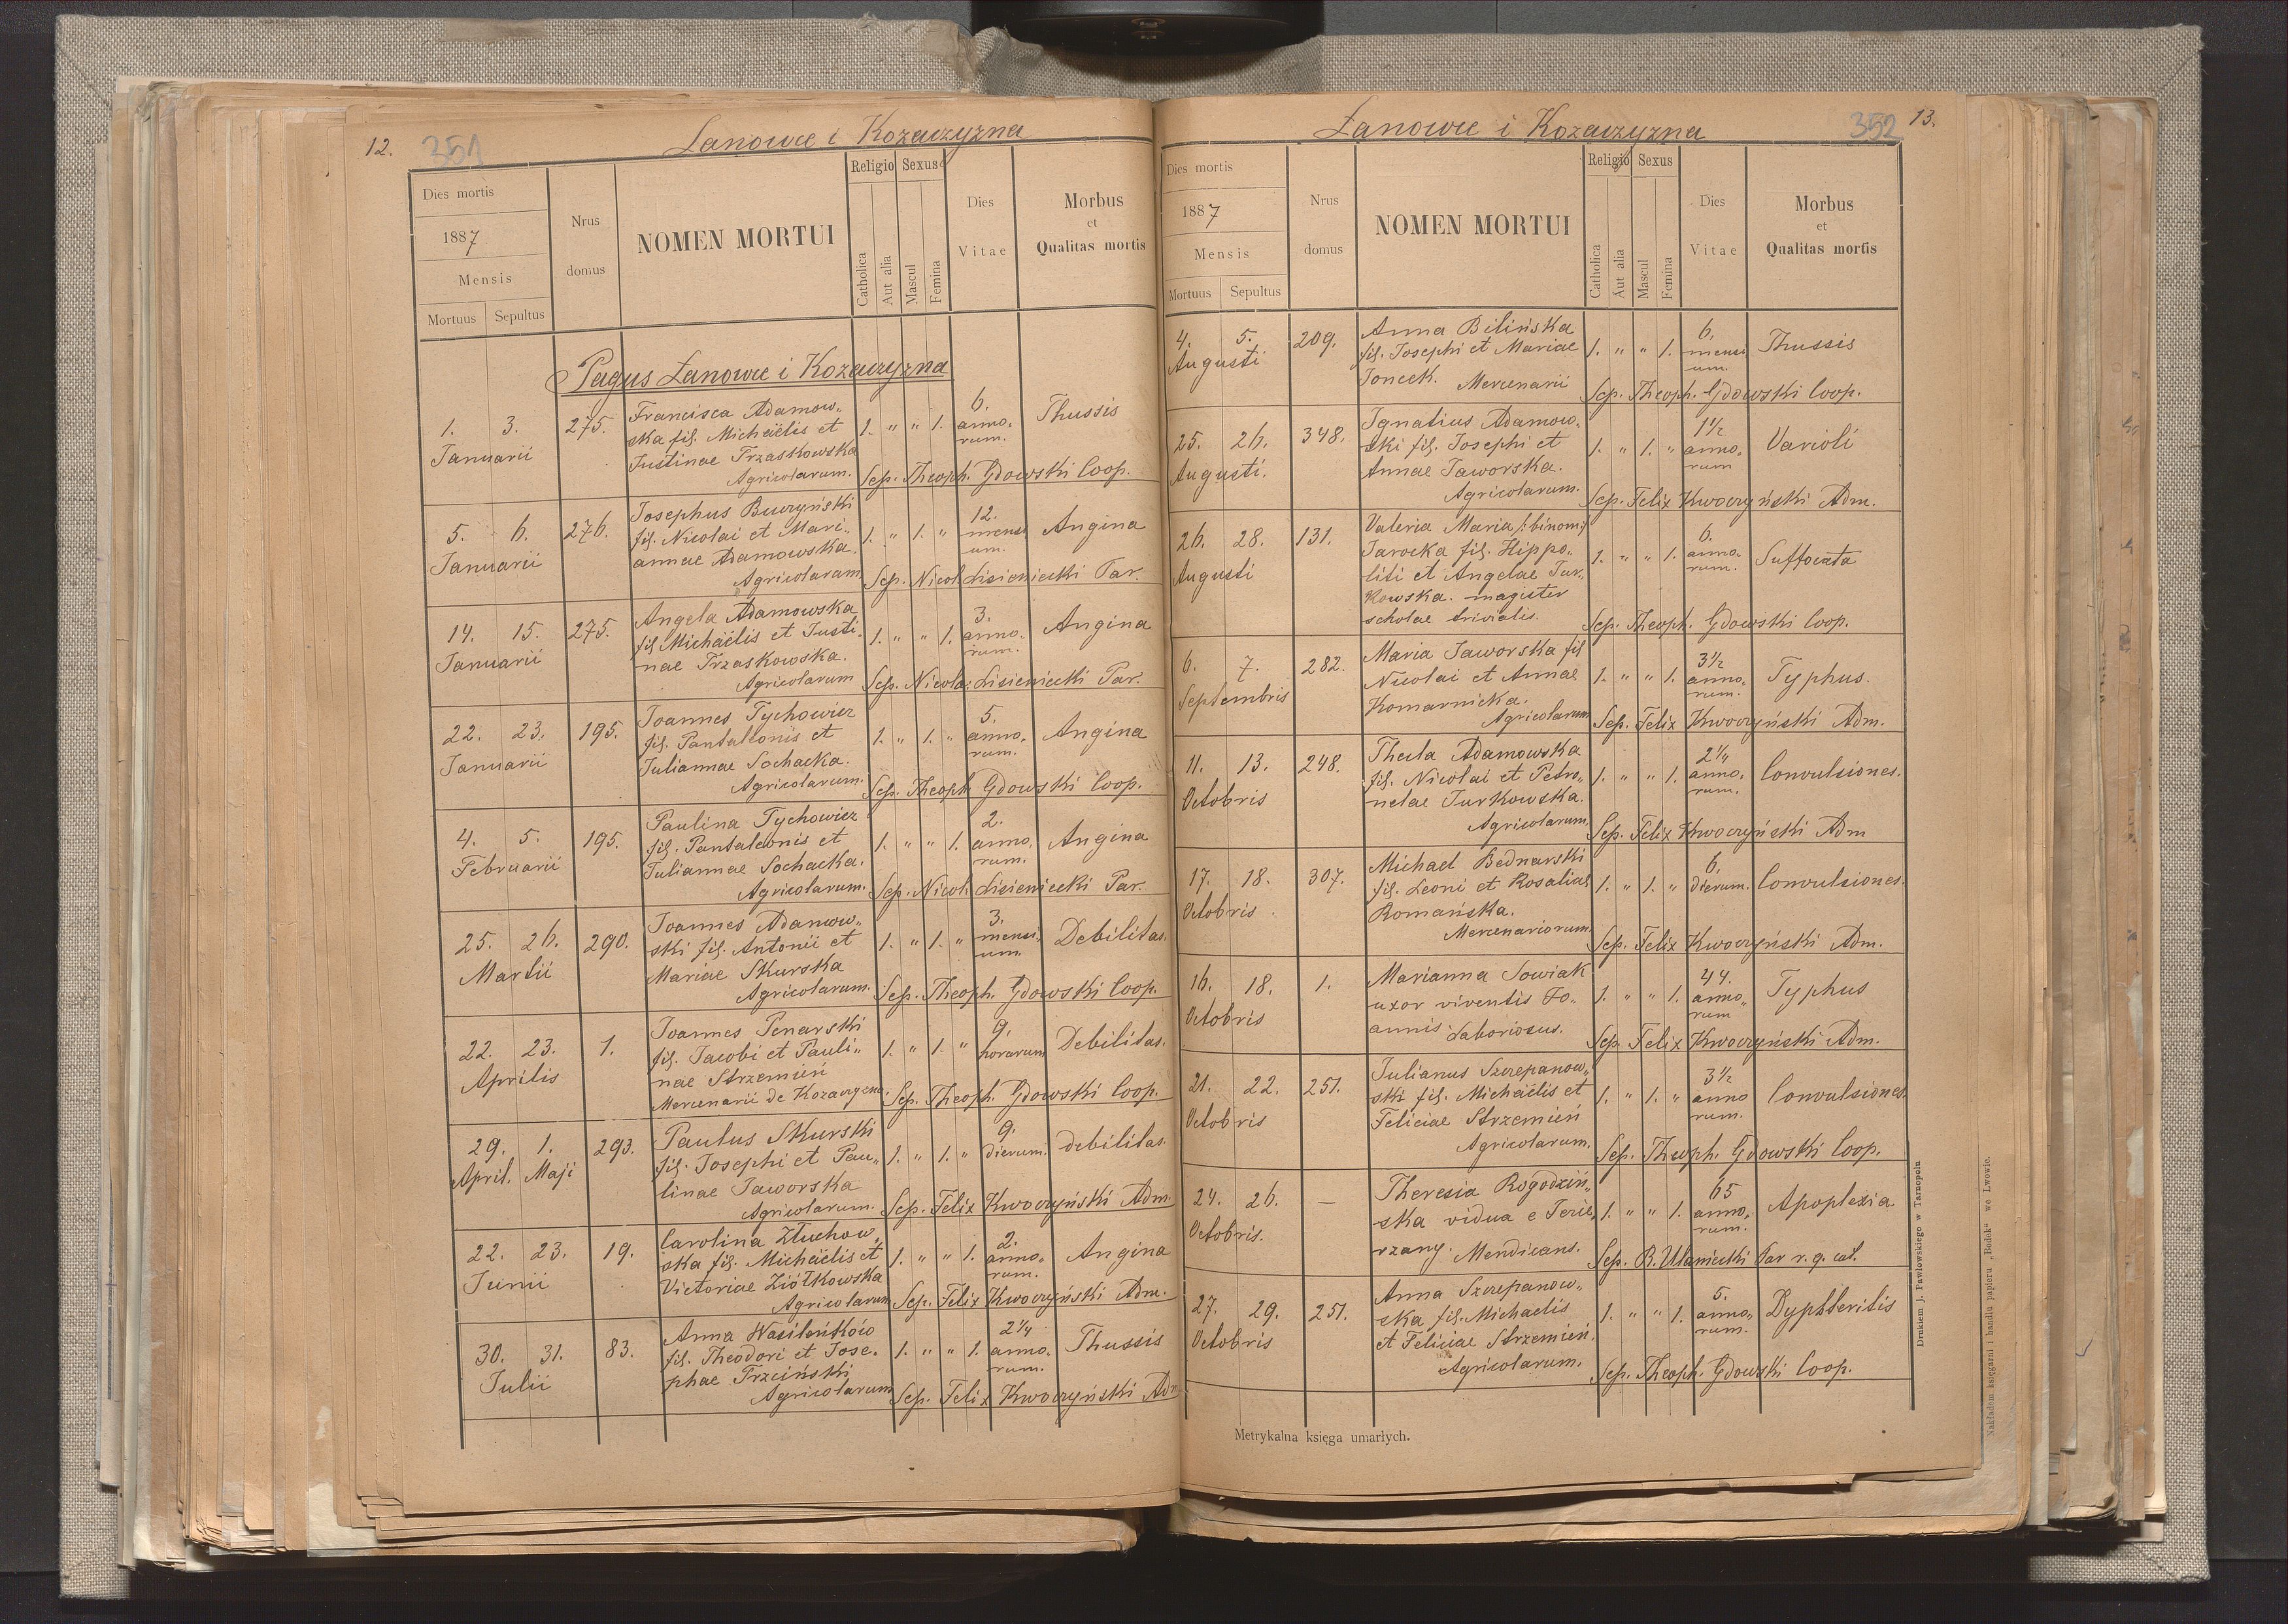 12.
351
Łanowce i Kozaczyzna
Dies mortis
1887
Mensis
Mortuus Sepultus
Nrus
domus
NOMEN MORTUI
Religio Sexus
Catholica
Aut alia
Mascul
Femina
Dies
Vitae
Morbus
et
Qualitas mortis
Pagus Łanowce i Kozaczyzna
1. 3.
Januarii
275.
Francisca Adamow„
ska fil. Michaëlis et
Justinae Trzaskowska
Agricolarum.
1. " " 1.
6.
anno.
rum.
Thussis
Sep. Theoph. Gdowski Coop.
5. 6.
Januarii
276.
Josephus Buczyński
fil. Nicolai et Mari„
annae Adamowska.
Agricolarum
1. " 1. "
12.
mensi
um.
Angina
Sep. Nicol. Lisieniecki Par.
14. 15.
Januarii
275.
Angela Adamowska
fil. Michaëlis et Justi„
nae Trzaskowska.
Agricolarum
1. " " 1.
3.
anno.
rum.
Angina
Sep. Nicola: Lisieniecki Par.
22. 23.
Januarii
195.
Joannes Tychowicz
fil. Pantaleonis et
Juliannae Sochacka.
Agricolarum.
1. " 1. "
5.
anno,
rum.
Angina
Sep. Theoph. Gdowski Coop.
4. 5.
Februarii
195.
Paulina Tychowicz
fil. Pantaleonis et
Juliannae Sochacka.
Agricolarum.
1. " " 1.
2.
anno,
rum.
Angina
Sep. Nicol. Lisieniecki Par.
25. 26.
Martii
290.
Joannes Adamow„
ski fil. Antonii et
Mariae Skurska
Agricolarum.
1. " 1. "
3.
mensi,
um
Debilitas.
Sep. Theoph. Gdowski Coop.
22. 23.
Aprilis
1.
Joannes Penarski
fil. Jacobi et Pauli„
nae Strzemień
Mercenarii de Kozaczyzna.
1. " 1. "
9.
horarum
Debilitas.
Sep. Theoph. Gdowski Coop.
29. 1.
April. Maji
293.
Paulus Skurski
fil. Josephi et Pau„
linae Jaworska
Agricolarum.
1. " 1. "
9.
dierum.
debilitas.
Sep. Felix Kwoczyński Adm.
22. 23.
Junii
19.
Carolina Złuchow„
ska fil. Michaëlis et
Victoriae Ziółkowska
Agricolarum
1. " " 1.
2.
anno„
rum.
Angina
Sep. Felix Kwoczyński Adm.
30. 31.
Julii
83.
Anna Wasileńków
fil. Theodori et Jose„
phae Trzciński
Agricolarum
1. " " 1.
2¼
anno.
rum.
Thussis
Sep. Felix Kwoczyński Adm
Łanowce i Kozaczyzna
352
13.
Dies mortis
1887
Mensis
Mortuus Sepultus
Nrus
domus
NOMEN MORTUI
Religio Sexus
Catholica
Aut alia
Mascul
Femina
Dies
Vitae
Morbus
et
Qualitas mortis
4. 5.
Augusti
209.
Anna Bilińska
fil. Josephi et Mariae
Joncek. Mercenarii
1. " " 1.
6.
mensi
um.
Thussis
Sep. Theoph. Gdowski Coop.
25. 26.
Augusti.
348.
Ignatius Adamow„
ski fil. Josephi et
Annae Jaworska.
Agricolarum.
1. " 1. "
1½
anno,
rum
Varioli
Sep. Felix Kwoczyński Adm.
26. 28.
Augusti
131.
Valeria Maria /:binom:/
Jarocka fil. Hippo„
liti et Angelae Jur„
kowska. magister
scholae trivialis.
1. " " 1.
6.
anno.
rum.
Suffocata
Sep. Theoph. Gdowski Coop.
6. 7.
Septembris
282.
Maria Jaworska fil
Nicolai et Annae
Komarnicka.
Agricolarum
1. " " 1.
3½
anno.
rum.
Typhus.
Sep. Felix Kwoczyński Adm.
11. 13.
Octobris
248.
Thecla Adamowska
fil. Nicolai et Petro„
nelae Jurkowska.
Agricolarum.
1. " " 1.
2¼
anno.
rum.
Convulsiones.
Sep. Felix Kwoczyński Adm
17. 18.
Octobris.
307.
Michael Bednarski
fil. Leoni et Rosaliae
Romańska.
Mercenariorum.
1. " 1. "
6.
dierum.
Convulsiones.
Sep. Felix Kwoczyński Adm.
16. 18.
Octobris
1.
Marianna Sowiak
uxor viventis Jo„
annis Laboriosus.
1. " " 1.
44.
anno„
rum
Typhus
Sep. Felix Kwoczyński Adm.
21. 22.
Octobris
251.
Julianus Szczepanow„
ski fil. Michaëlis et
Feliciae Strzemień
Agricolarum.
1. " 1. "
3½
anno
rum.
Convulsiones.
Sep. Theoph. Gdowski Coop.
24. 26.
Octobris.
—
Theresia Rogodziń„
ska vidua e Jezie„
rzany. Mendicans.
1. " " 1.
65
anno,
rum.
Apoplexia.
Sep. B. Ulaniecki Par r. g. cat.
27. 29.
Octobris
251.
Anna Szczepanow„
ska fil. Michaelis
et Feliciae Strzemień.
Agricolarum.
1. " " 1.
5.
anno,
rum.
Dyphteritis
Sep. Theoph. Gdowski Coop.
Metrykalna księga umarłych.
Drukiem J. Pawłowskiego w Tarnopolu
Nakładem księgarni i handlu papieru „Bodek“ we Lwowie.